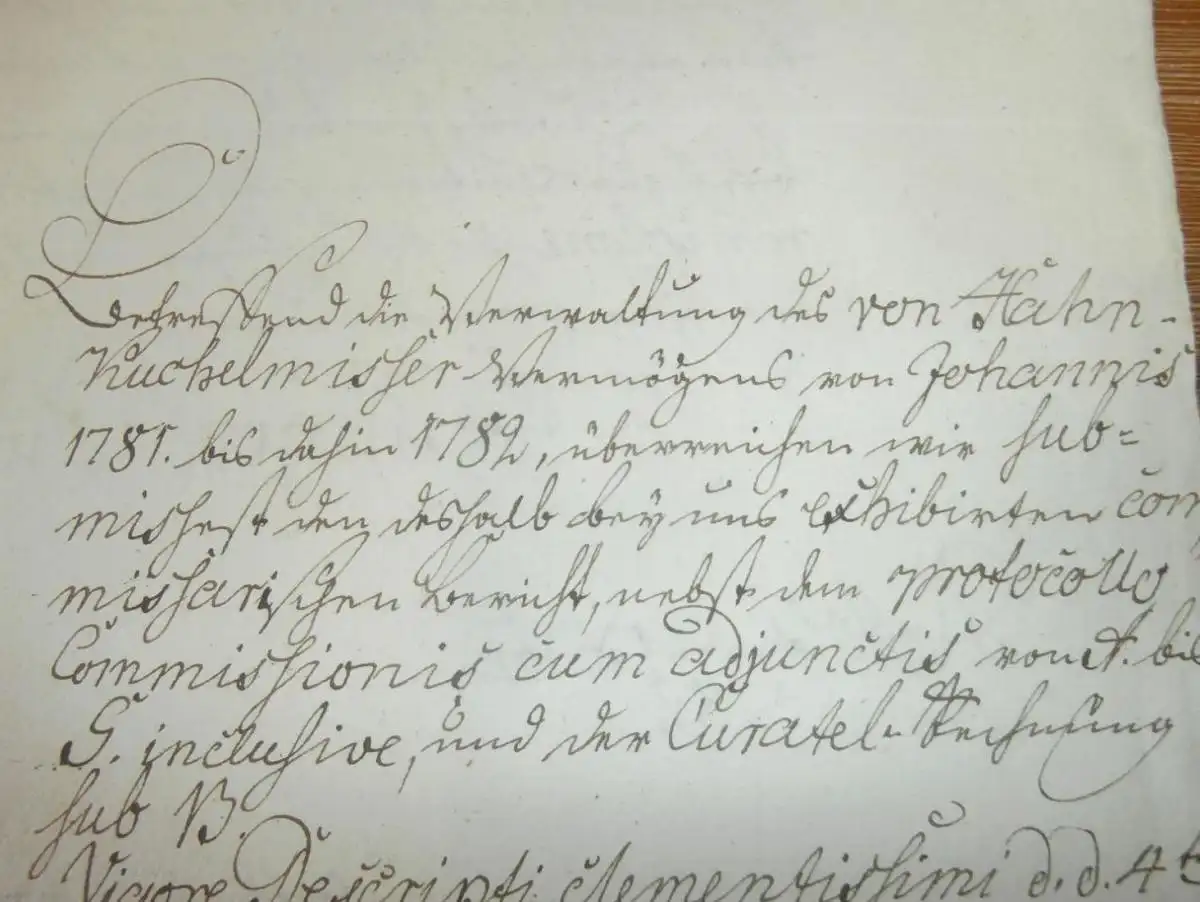 Betreffend die Verwaltung des von Hahn-
Kuchelmisser Vermögens von Johannis
1781. bis dahin 1782, überreichen wir sub-
missest den deshalb bey uns exhibirten com
missarischen Bericht, nebst dem protocollo
Commissionis cum adjunctis von A. bis
G. inclusive, und der Curatel-Rechnung
sub B.
Vigore Rescripti clementissimi d. d. 4t